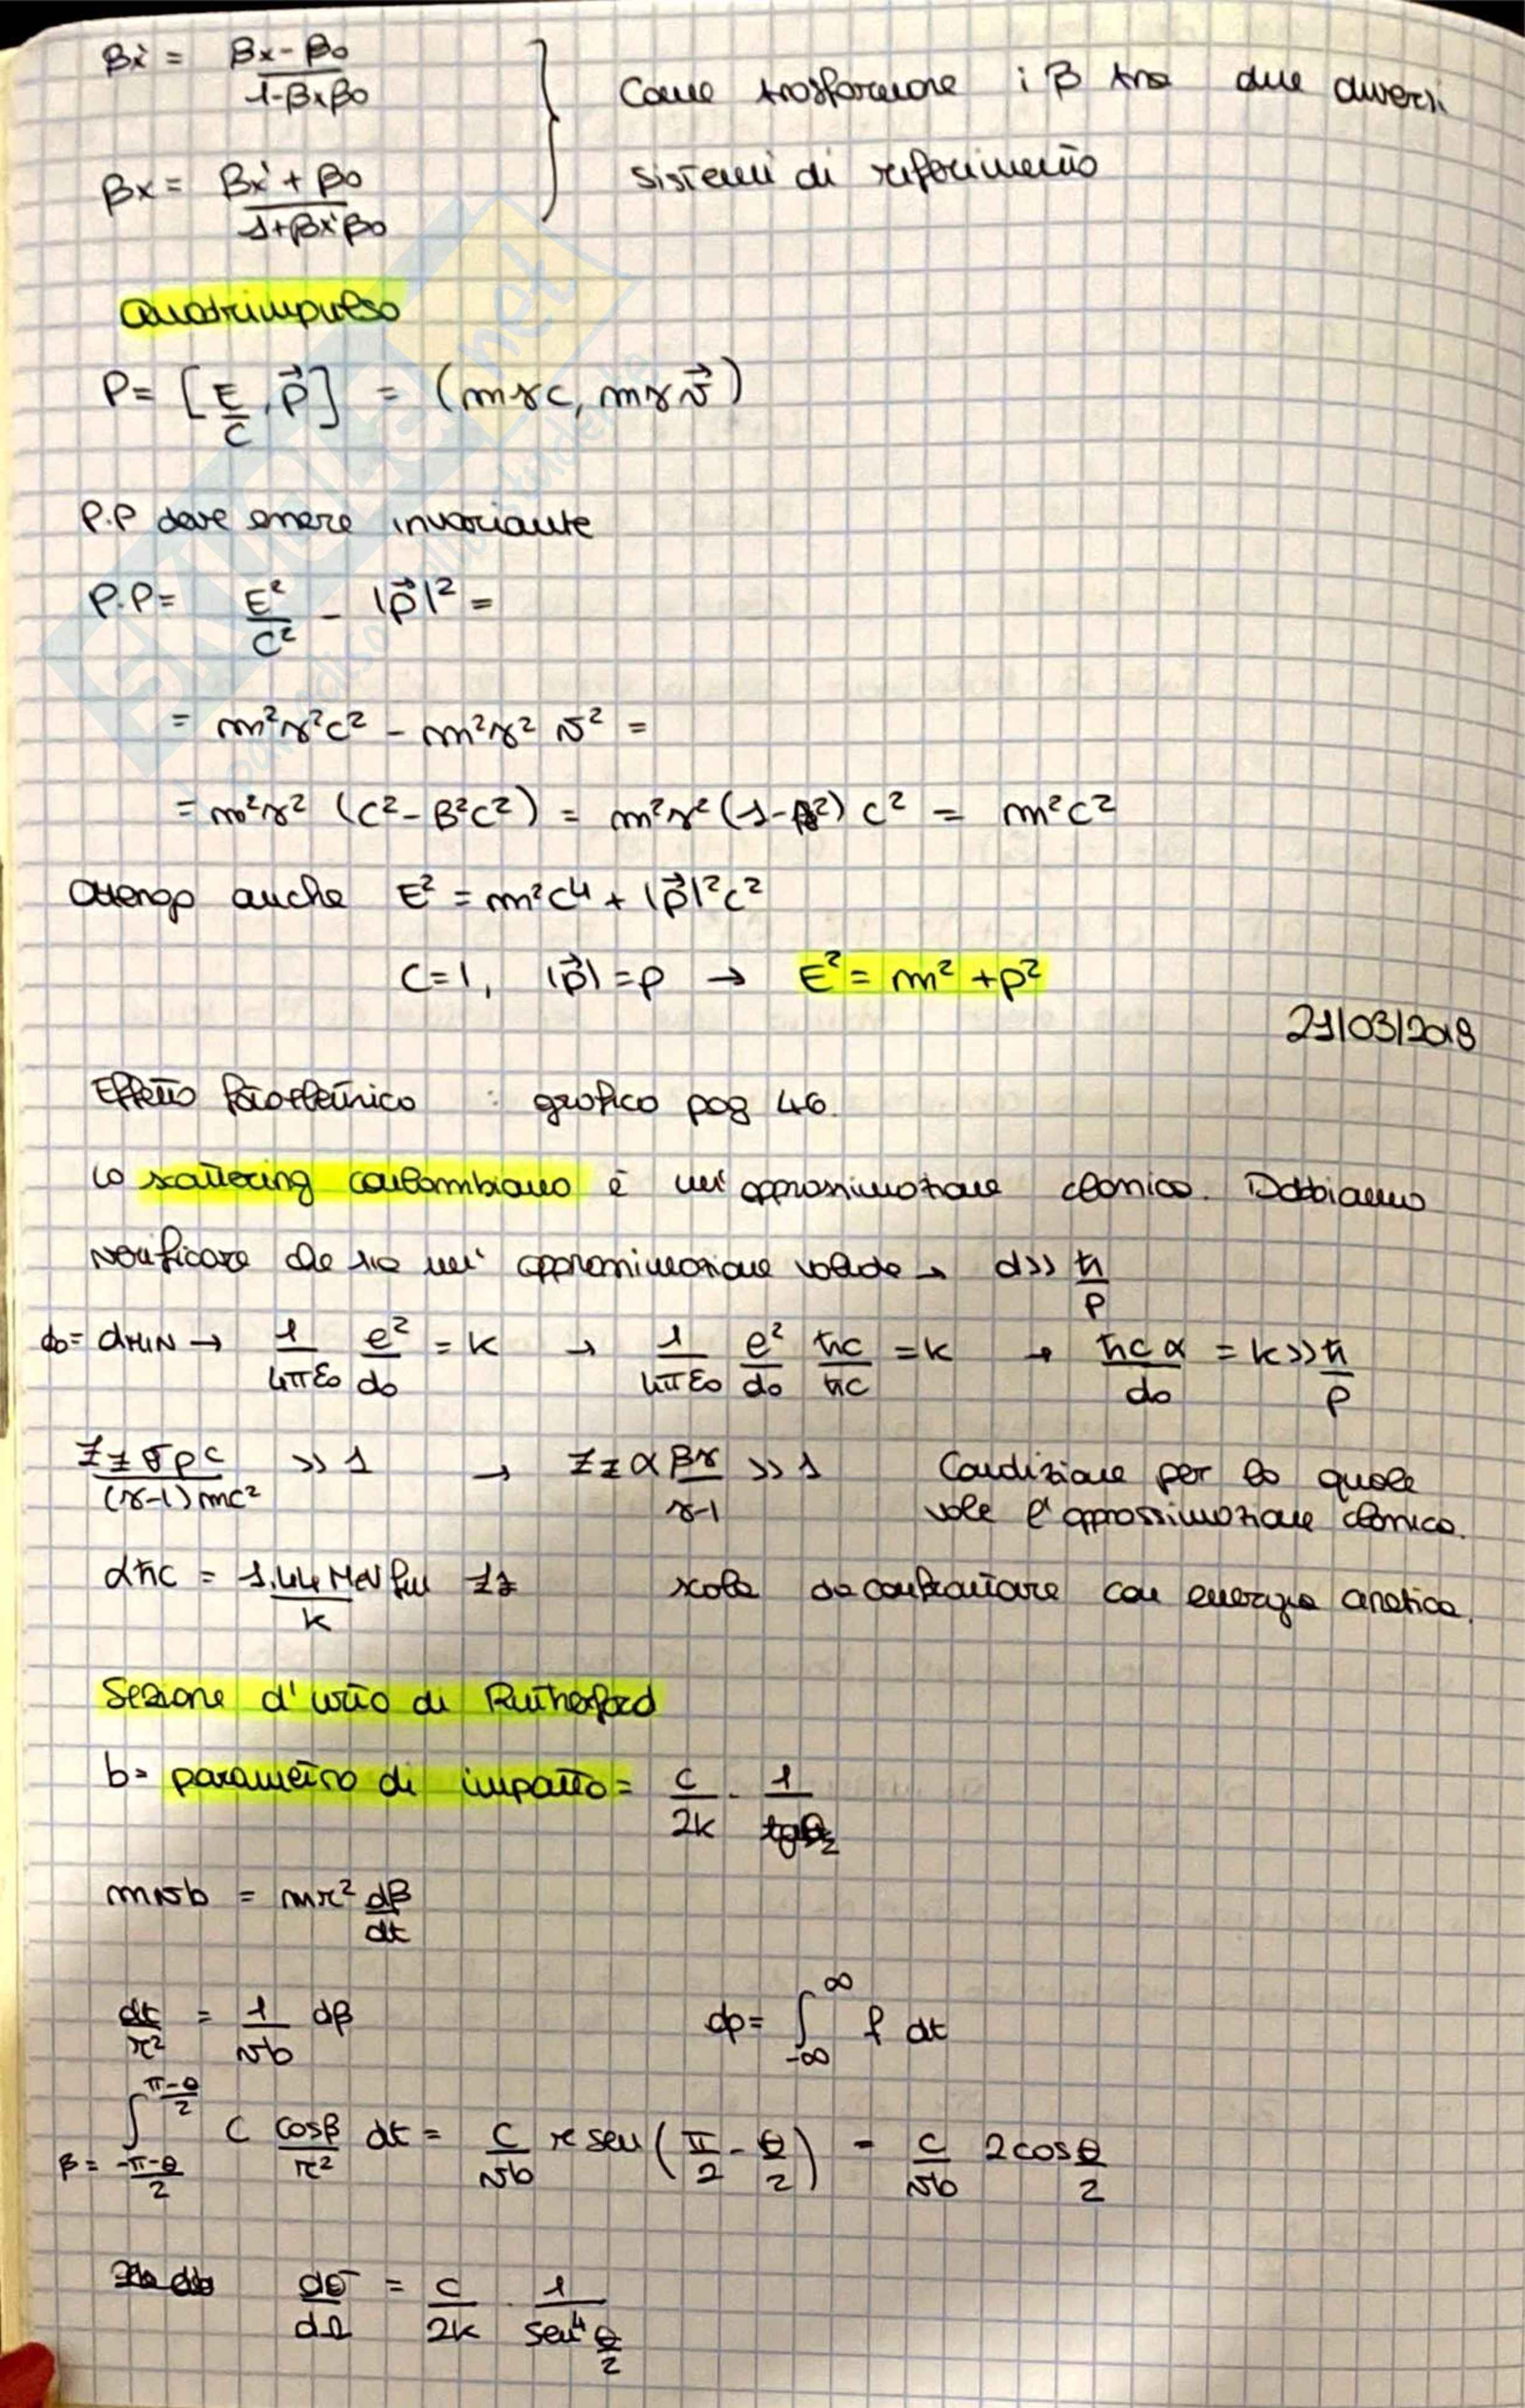 βx' = βx - β0 / 1 - βxβ0
Come trasformare i β tra due diversi
βx = βx' + β0 / 1 + βx'β0
sistemi di riferimento
Quadrimpulso
P = [E/c, p⃗] = (mγc, mγv⃗)
P.P deve essere invariante
P.P = E²/c² - |p⃗|² =
= m²γ²c² - m²γ² v² =
= m²γ² (c² - β²c²) = m²γ² (1-β²) c² = m²c²
Ottengo anche E² = m²c⁴ + |p⃗|²c²
c=1, |p⃗| = p → E² = m² + p²
21/03/2018
Effetto fotoelettrico : grafico pag 46.
Lo scattering coulombiano è un'approssimazione classica. Dobbiamo
verificare che sia un'approssimazione valida → d>> ħ/p
d0 = dMIN → 1/4πε0 e²/d0 = k → 1/4πε0 e²/d0 ħc/ħc = k → ħc α/d0 = k >> ħ/p
Zz σpc/(γ-1)mc² >> 1 → Zzα βγ/γ-1 >> 1 Condizione per la quale
vale l'approssimazione classica.
αħc = 1.44 MeV fm/k Zz scala da confrontare con energia cinetica.
Sezione d'urto di Rutherford
b = parametro di impatto = c/2k . 1/tgθ/2
mvb = mr² dβ/dt
dt/r² = 1/vb dβ dp = ∫-∞^∞ f dt
∫β=-π-θ/2^π-θ/2 C cosβ/r² dt = C/vb 2 sen(π/2 - θ/2) = C/vb 2cosθ/2
dσ/dΩ = C/2k . 1/sen⁴θ/2